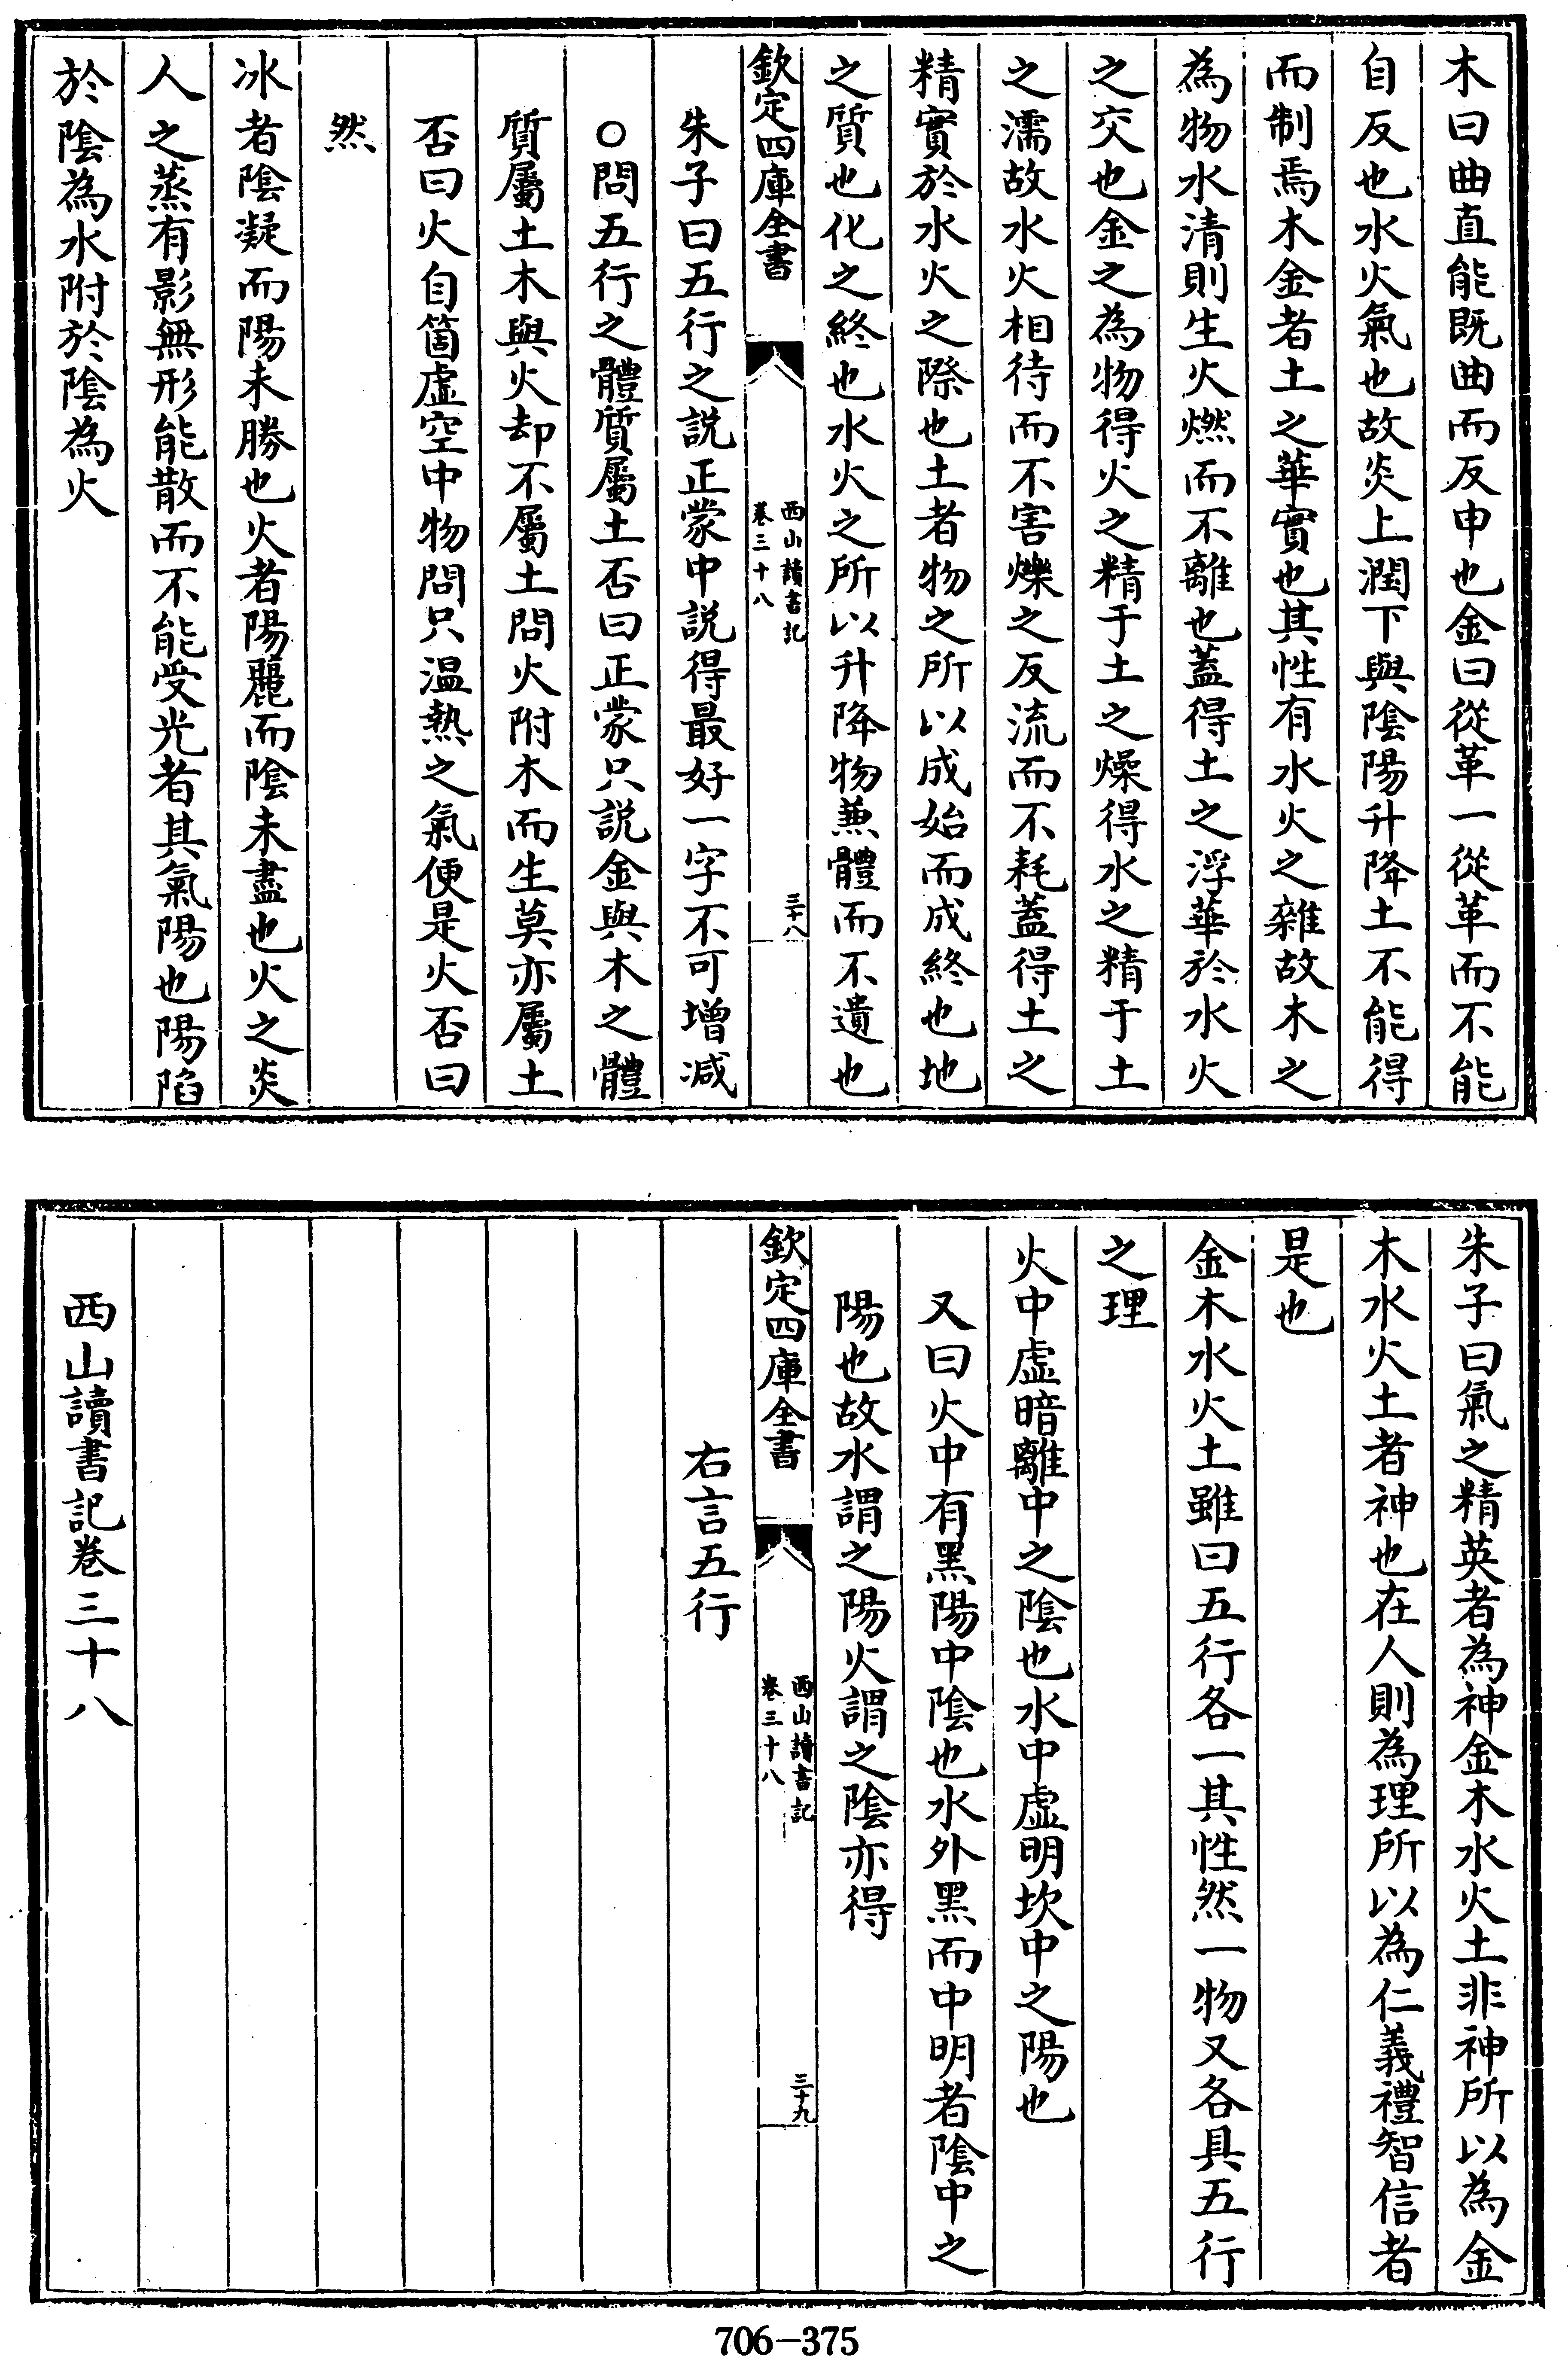 木曰曲直能既曲而反申也金曰從革一從革而不能
自反也水火氣也故炎上潤下與陰陽升降土不能得
而制焉木金者土之華實也其性有水火之雜故木之
為物水清則生火燃而不離也蓋得土之浮華於水火
之交也金之為物得火之精于土之燥得水之精于土
之濡故水火相待而不害爍之反流而不耗蓋得土之
精實於水火之際也土者物之所以成始而成終也地
之質也化之終也水火之所以升降物兼體而不遺也
欽定四庫全書
西山讀書記
卷三十八
三十八
朱子曰五行之說正蒙中說得最好一字不可增減
○問五行之體質屬土否曰正蒙只說金與木之體
質屬土木與火却不屬土問火附木而生莫亦屬土
否曰火自箇虛空中物問只温熱之氣便是火否曰
然
冰者陰凝而陽未勝也火者陽麗而陰未盡也火之炎
人之蒸有影無形能散而不能受光者其氣陽也陽陷
於陰為水附於陰為火
朱子曰氣之精英者為神金木水火土非神所以為金
木水火土者神也在人則為理所以為仁義禮智信者
是也
金木水火土雖曰五行各一其性然一物又各具五行
之理
火中虛暗離中之陰也水中虛明坎中之陽也
又曰火中有黑陽中陰也水外黑而中明者陰中之
陽也故水謂之陽火謂之陰亦得
欽定四庫全書
西山讀書記
卷三十八
三十九
右言五行
西山讀書記卷三十八
706-375